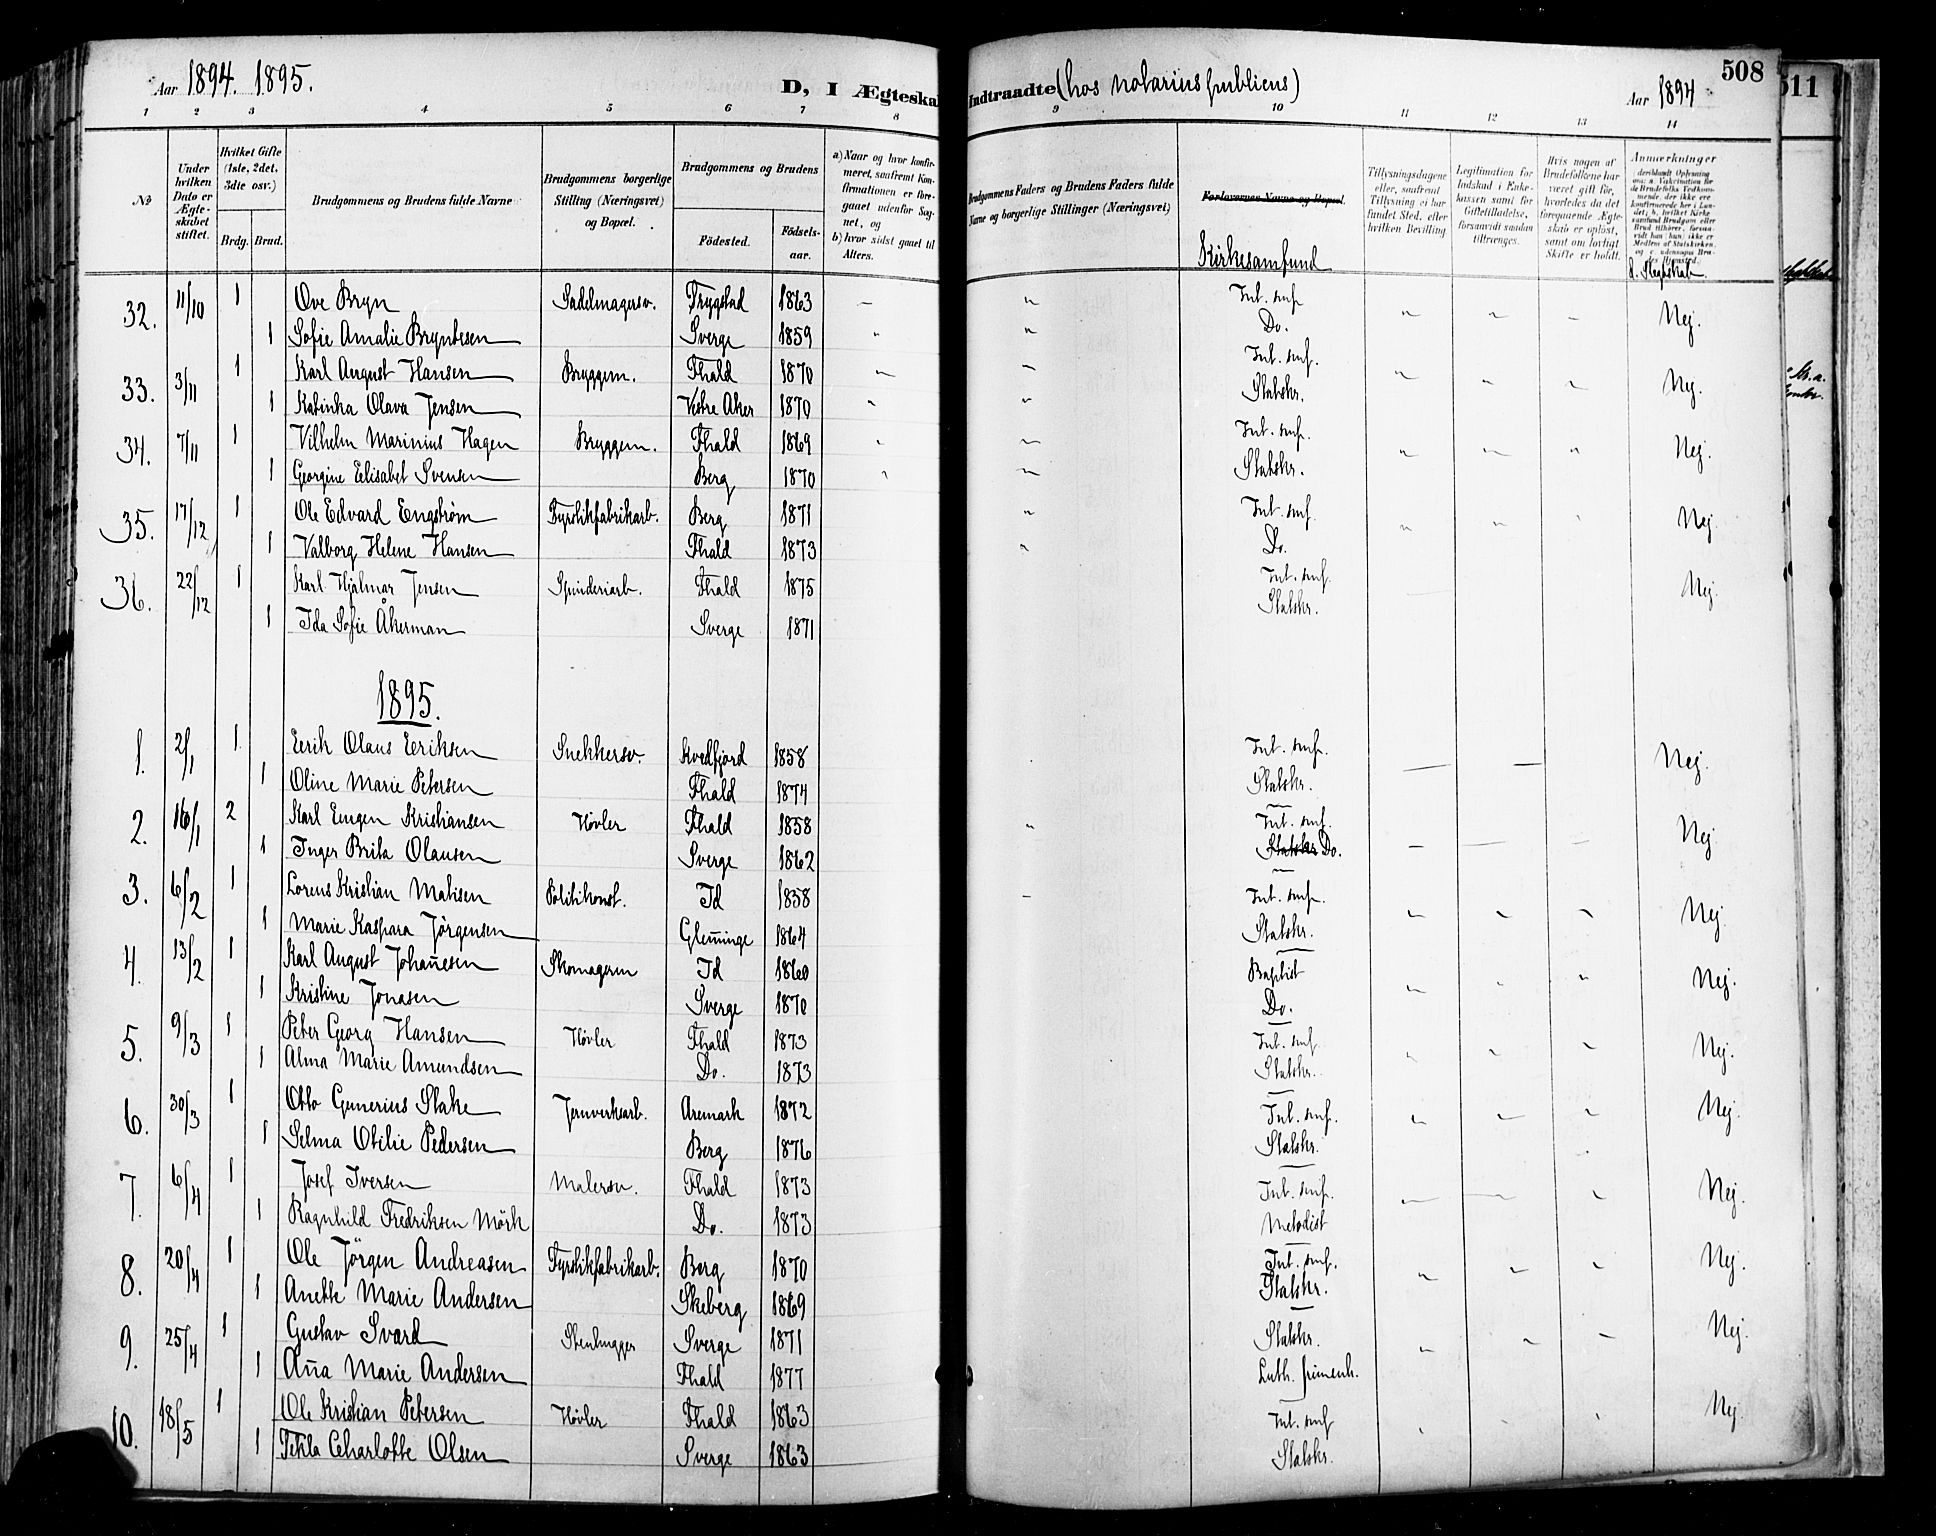 Aar 1894. 1895. D, I Ægteska Indtraadte (hos notarius publicus) Aar 1894 508
511
1 2 3 4 5 6 7 8 9 10 11 12 13 14
No
Under hvilken Dato er Ægteskabet stiftet.
Hvilket Gifte (1ste, 2det, 3dte osv.)
Brdg. Brud.
Brudgommens og Brudens fulde Navne
Brudgommens borgerlige Stilling (Næringsvei) og Bopæl.
Brudgommens og Brudens
Fødested. Fødselsaar.
a) Naar og hvor konfirmeret, saafremt Konfirmationen er foregaaet udenfor Sognet, og
b) hvor sidst gaaet til Alters.
Brudgommens Faders og Brudens Faders fulde Navne og borgerlige Stillinger (Næringsvei)
Forlovernes Navne og Bopæl.
Kirkesamfund
Tillysningsdagene eller, saafremt Tillysning ei har fundet Sted, efter hvilken Bevilling
Legitimation for Indskud i Enkekassen samt for Giftetilladelse, forsaavidt saadan tiltrænges.
Hvis nogen af Brudefolkene har været gift før, hvorledes da det foregaaende Ægteskab er opløst, samt om lovligt Skifte er holdt.
Anmærkninger
32. 11/10 1 Ove Bryn Sadelmagersv. Trygstad 1863 Int. smf. Nej.
1 Sofie Amalie Bryntesen Sverge 1859 Do.
33. 3/11 1 Karl August Hansen Bryggem. Fhald 1870 Int. smf. Nej.
1 Katinka Olava Jensen Vestre Aker 1870 Statskr.
34. 7/11 1 Vilhelm Marinius Hagen Bryggem. Fhald 1869 Int. smf. Nej.
1 Georgine Elisabet Svensen Berg 1870 Statskr.
35. 17/12 1 Ole Edvard Engstrøm Fyrstikfabrikarb. Berg 1871 Int. smf. Nej.
1 Valborg Helene Hansen Fhald 1873 Do.
36. 22/12 1 Karl Hjalmar Jensen Spinderiarb. Fhald 1875 Int. smf. Nej.
1 Ida Sofie Åkerman Sverge 1871 Statskr.
1895.
1. 2/1 1 Eerik Olaus Eeriksen Snekkersv. Kvedfjord 1858 Int. smf. Nej.
1 Oline Marie Petersen Fhald 1874 Statskr.
2. 16/1 2 Karl Eugen Kristiansen Høvler Fhald 1858 Int. smf. Nej
1 Inger Brita Olausen Sverge 1862 Statskr Do.
3. 6/2 1 Lorens Kristian Matisen Politikonst. Id 1858 Int. smf. Nej
1 Marie Kaspara Jørgensen Glem̄inge 1864 Statskr.
4. 13/2 1 Karl August Johan̄esen Skomagerm Id 1860 Baptist Nej.
1 Kristine Jonasen Sverge 1870 Do.
5. 9/3 1 Peter Georg Hansen Høvler Fhald 1873 Int. smf Nej.
1 Alma Marie Amundsen Do. 1873 Statskr.
6. 30/3 1 Otto Gunerius Stake Jernverksarb. Aremark 1872 Int. smf. Nej.
1 Selma Otilie Pedersen Berg 1876 Statskr.
7. 6/4 1 Josef Iversen Malersv. Fhald 1873 Int. smf. Nej.
1 Ragnhild Fredriksen Mörk Do. 1873 Metodist
8. 20/4 1 Ole Jörgen Andreasen Fyrstikfabrikarb. Berg 1870 Int. smf. Nej
1 Anette Marie Andersen Skeberg 1869 Statskr.
9. 25/4 1 Gustav Svard Stenhugger Sverge 1871 Statskr. Nej.
1 An̄a Marie Andersen Fhald 1877 Luth. frimenh.
10. 18/5 1 Ole Kristian Petersen Høvler Fhald 1863 Int. smf Nej.
1 Tekla Charlotte Olsen Sverge 1863 Statskr.